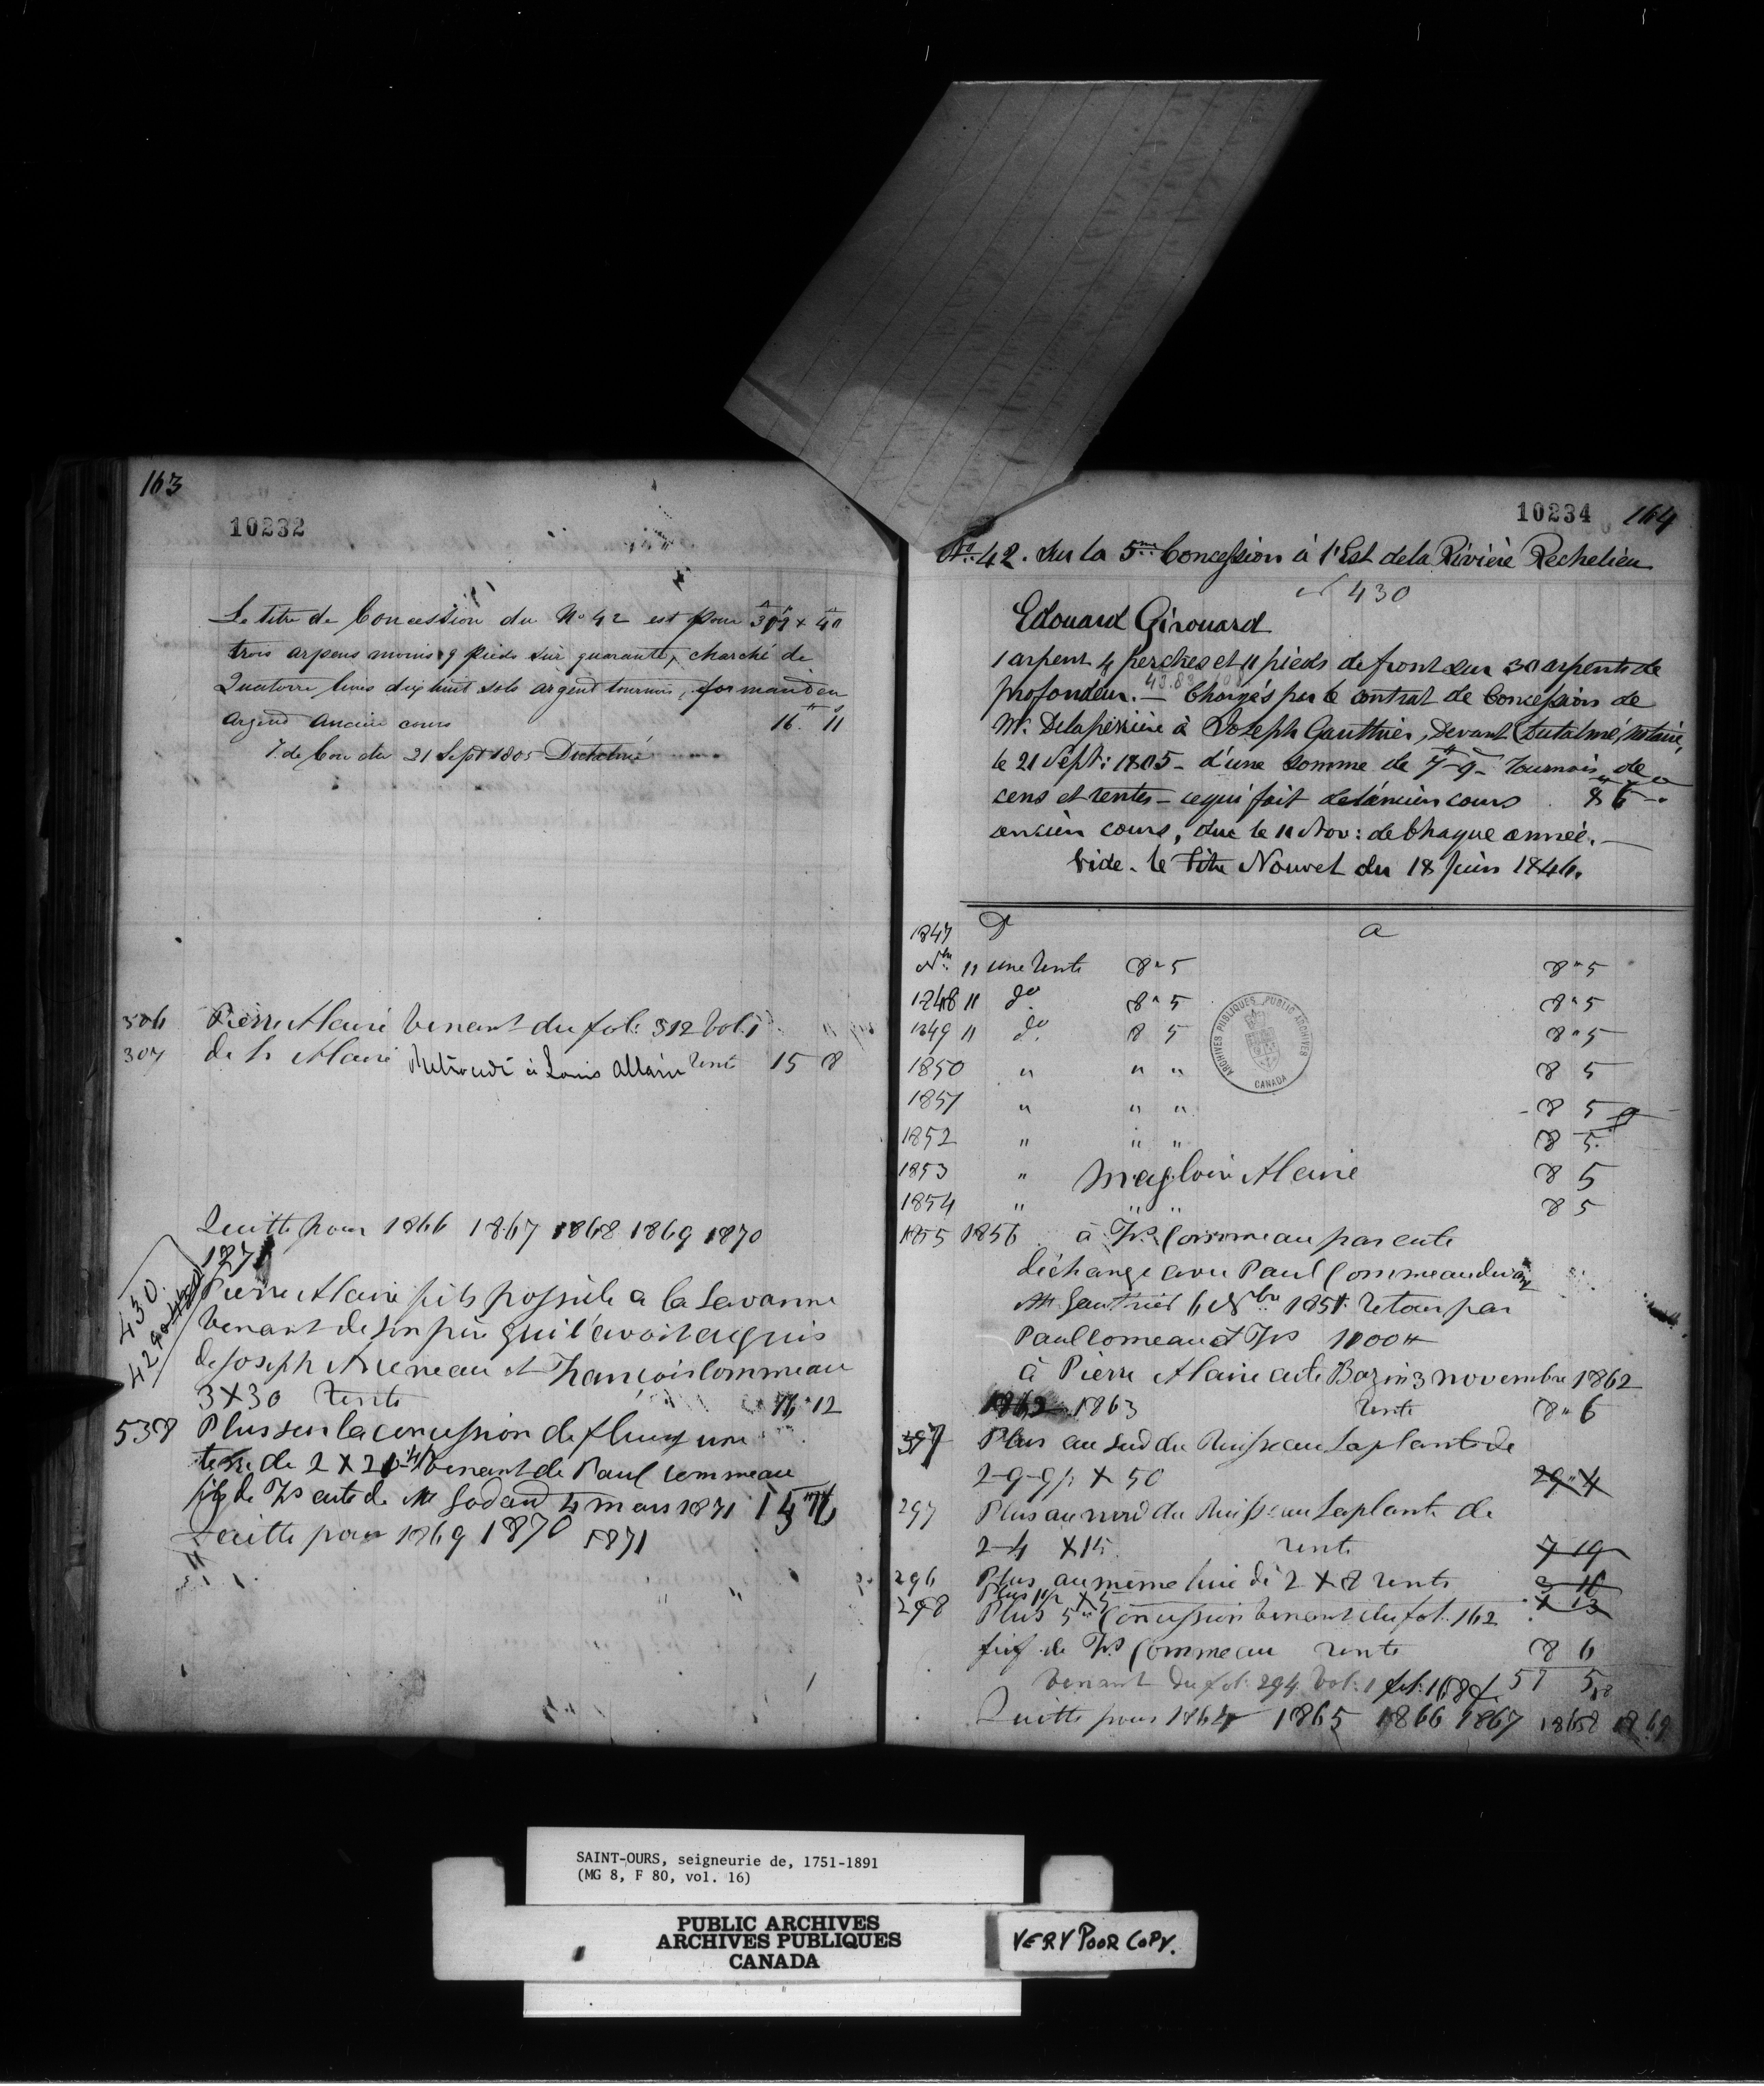 163
10232
Le titre de Concession du No 42 est pour
trois arpens moins 9 pieds sur quarante, charché de
Quatorze livres dix huit sols argent tournois, formant en
argent ancien cours 16 " 11
T. de Con du 21 Sept 1805
306 Pierre Alaire venant du fol: 312 Vol. 1
307 de h Alaire Retrocedé à Louis Allaire rente 15 8
Quitte pour 1866 1867 1868 1869 1870
1871
430
Pierre Alaire fils possède a la Savanne
venant de son père qui l'avoit acquis
de Joseph et François Commeau
3 X 30 rente 12
538 Plus sur la concession de fleury une
terre de 2 X venant de Paul Commeau
fils de Frs acte de Mr 4 mars 1871
Quitte pour 1869 1870 1871
10234 164
No. 42. Sur la 5me Concession à l'Est de la Rivière Rechelieu
430
Edouard Girouard
1 arpent 4 perches et 11 pieds de front sur 30 arpents de
profondeur. — Chargés par le contrat de Concession de
Mr. Delaperrière à Joseph Gauthier, devant Notaire,
le 21 Sept: 1805 - d'une somme de 7 - 9 - Tournois de
cens et rentes - ce qui fait de l'ancien cours 8 6
ancien cours, due le 11 Nov: de Chaque année. —
Vide. le Titre Nouvel du 18 Juin 1846.
1847 D a
Nbre 11 une rente 8 " 5 8 " 5
1848 11 do 8 " 5 8 " 5
1849 11 do 8 5 8 " 5
1850 " " " 8 5
1851 " " " 8 5
1852 " " " 8 5
1853 " Magloire Alaire 8 5
1854 " " " 8 5
1855 1856 à Frs Commeau par acte
d'échange avec Paul Commeau
Mr Gauthier 6 Nbre 1851 retour par
Paul Comeau à Frs 1000 #
à Pierre Alaire acte Bazin 3 novembre 1862
1862 1863 rente 8 " 6
Plus au sud du Ruisseau Laplante de
2-9-9p X 50 29 " 4
297 Plus au nord du Ruisseau Laplante de
2-4 X 15 rente 7 19
296 Plus au même lieu de 2 X 8 rente
298 Plus 5me Concession venant du fol. 162
fief de Frs Commeau rente 8 6
venant du fol. 294 Vol: 1
Quitte pour 1864 1865 1866 1867 1868 1869
ARCHIVES PUBLIQUES PUBLIC ARCHIVES
CANADA
SAINT-OURS, seigneurie de, 1751-1891
(MG 8, F 80, vol. 16)
PUBLIC ARCHIVES
ARCHIVES PUBLIQUES
CANADA
VERY POOR COPY.